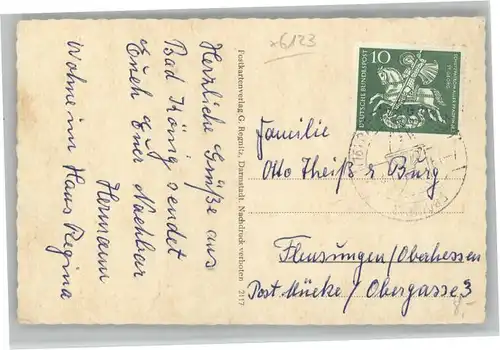 x6123
Herzliche Grüße aus
Bad König sendet
Euch Euer Nachbar
Hermann
Wohne im Haus Regina
Postkartenverlag G. Regnitz, Darmstadt. Nachdruck verboten 2117
10
DEUTSCHE BUNDESPOST
Familie
Otto Theiß r Burg.
Flensungen/Oberhessen
Post Mücke/Obergasse 3
8,-